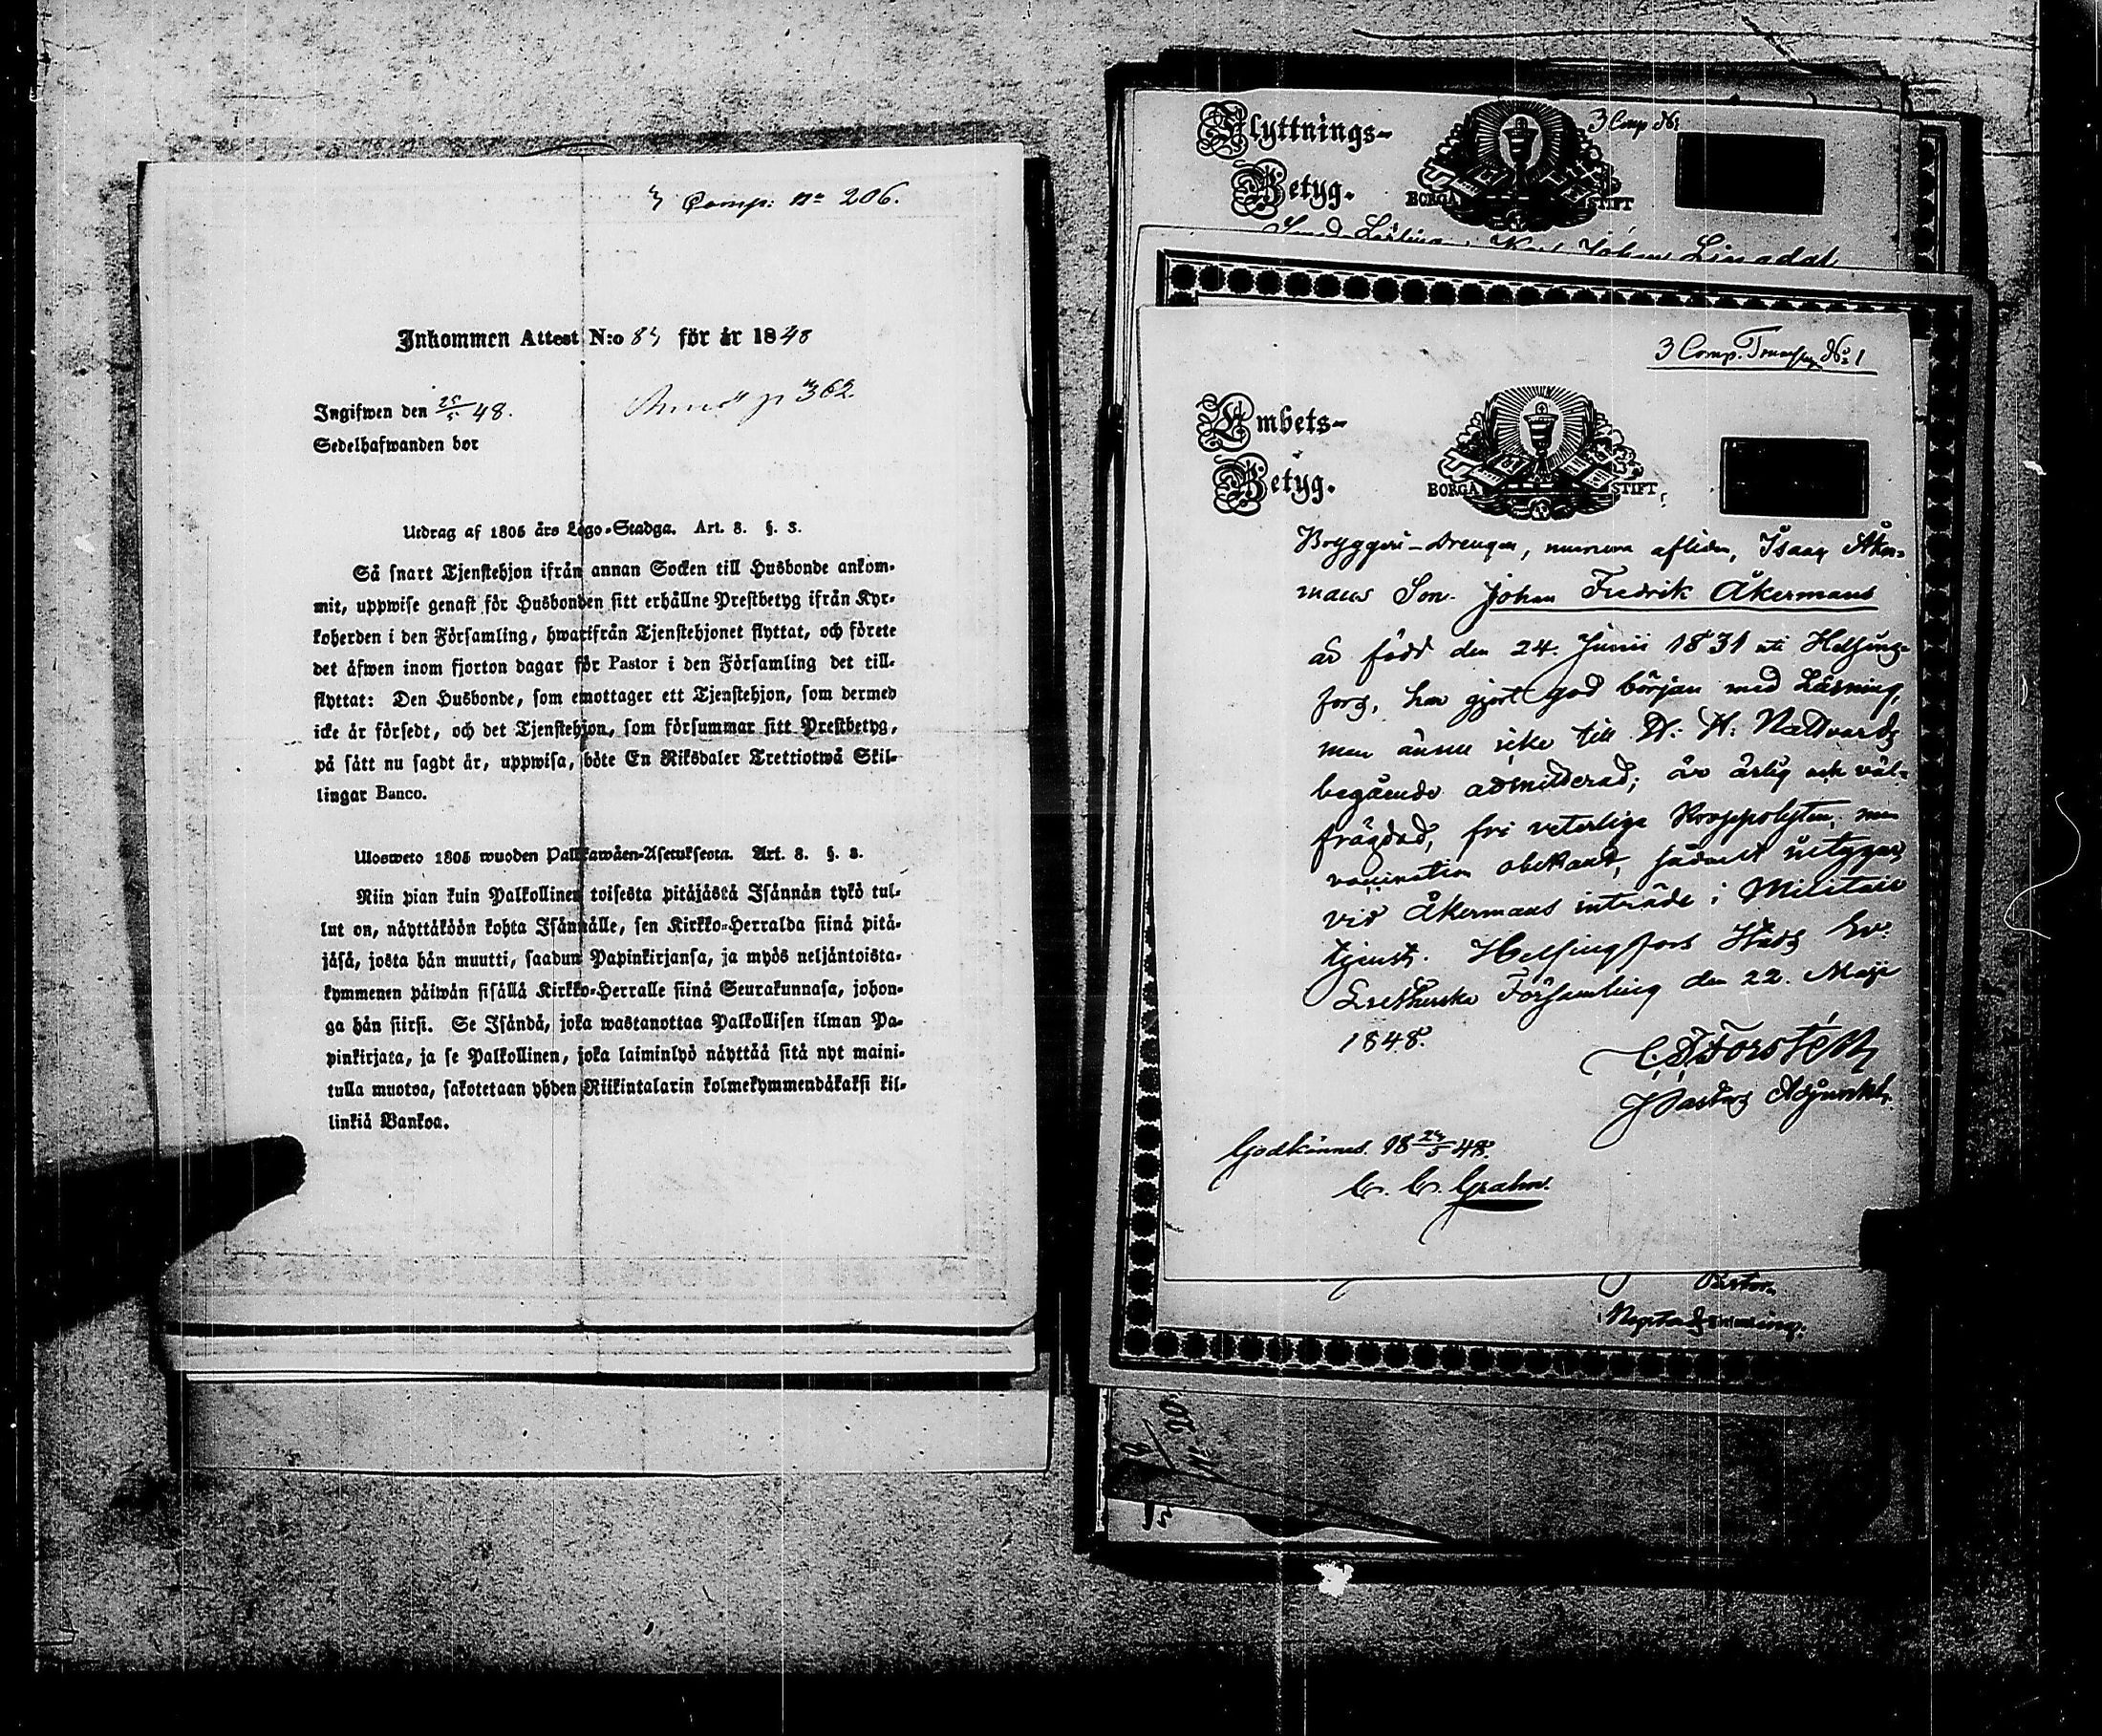 3 Comp: No 206.
Inkommen Attest N:o 83 för år 1848
Ingifwen den 25/5 48.
p 362.
Sedelhafwanden bor
Utdrag af 1805 års Lego-Stadga. Art. 8. §. 3.
Så snart Tjenstehjon ifrån annan Socken till Husbonde ankom-
mit, uppwise genast för Husbonden sitt erhållne Prestbetyg ifrån Kyr-
koherden i den Församling, hwarifrån Tjenstehjonet flyttat, och förete
det äfwen inom fjorton dagar för Pastor i den Församling det till-
flyttat: Den Husbonde, som emottager ett Tjenstehjon, som dermed
icke är försedt, och det Tjenstehjon, som försummar sitt Prestbetyg,
på sätt nu sagdt är, uppwisa, böte En Riksdaler Trettiotwå Skil-
lingar Banco.
Ulosweto 1805 wuoden Palkkawäen-Asetuksesta. Art. 8. §. 3.
Niin pian kuin Palkollinen toisesta pitäjästä Isännän tykö tul-
lut on, näyttäköön kohta Isännälle, sen Kirkko-Herralda siinä pitä-
jäsä, josta hän muutti, saadun Papinkirjansa, ja myös neljäntoista-
kymmenen päiwän sisällä Kirkko-Herralle siinä Seurakunnasa, johon-
ga hän siirsi. Se Isändä, joka wastanottaa Palkollisen ilman Pa-
pinkirjata, ja se Palkollinen, joka laiminlyö näyttää sitä nyt maini-
tulla muotoa, sakotetaan yhden Riikintalarin kolmekymmendäkaksi kil-
linkiä Bankoa.
Flyttnings-
Betyg.
3 Comp No
BORGÅ STIFT
Johan Linadal
3 Comp. No 1
Embets-
Betyg.
BORGÅ STIFT
Bryggeri-Drengen, numera afliden, Isaac Åker-
mans Son Johan Fredrik Åkermans
är född den 24. Junii 1831 uti Helsing-
fors, har gjort god början med Läsning,
men ännu icke till H. H. Nattvards
begående admitterad; är ärlig och väl-
frägdad, fri veterliga Kroppslyten, men
vaccination obekant, sådant betygas
vid Åkermans inträde i Militaire
tjenst. Helsingfors Stads Ev.
Lutherska Församling den 22. Maji
1848.
Forstén
Pastors Adjunkt.
Godkännes 18 24/5 48.
Grahn.
Pastor.